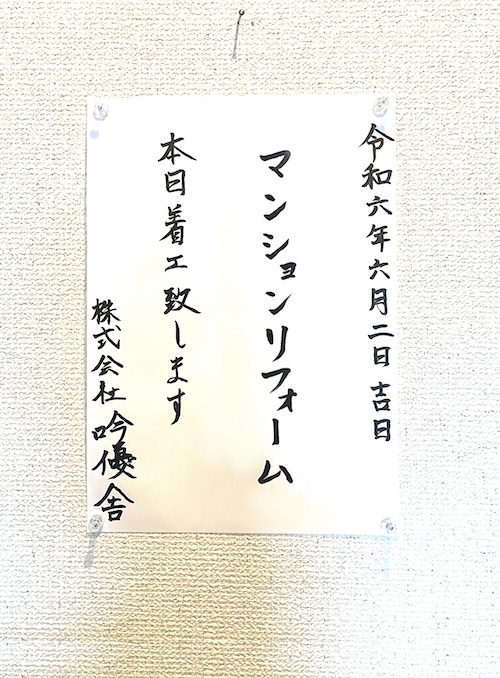 令和六年六月二日 吉日
マンションリフォーム
本日着工致します
株式会社吟優舎